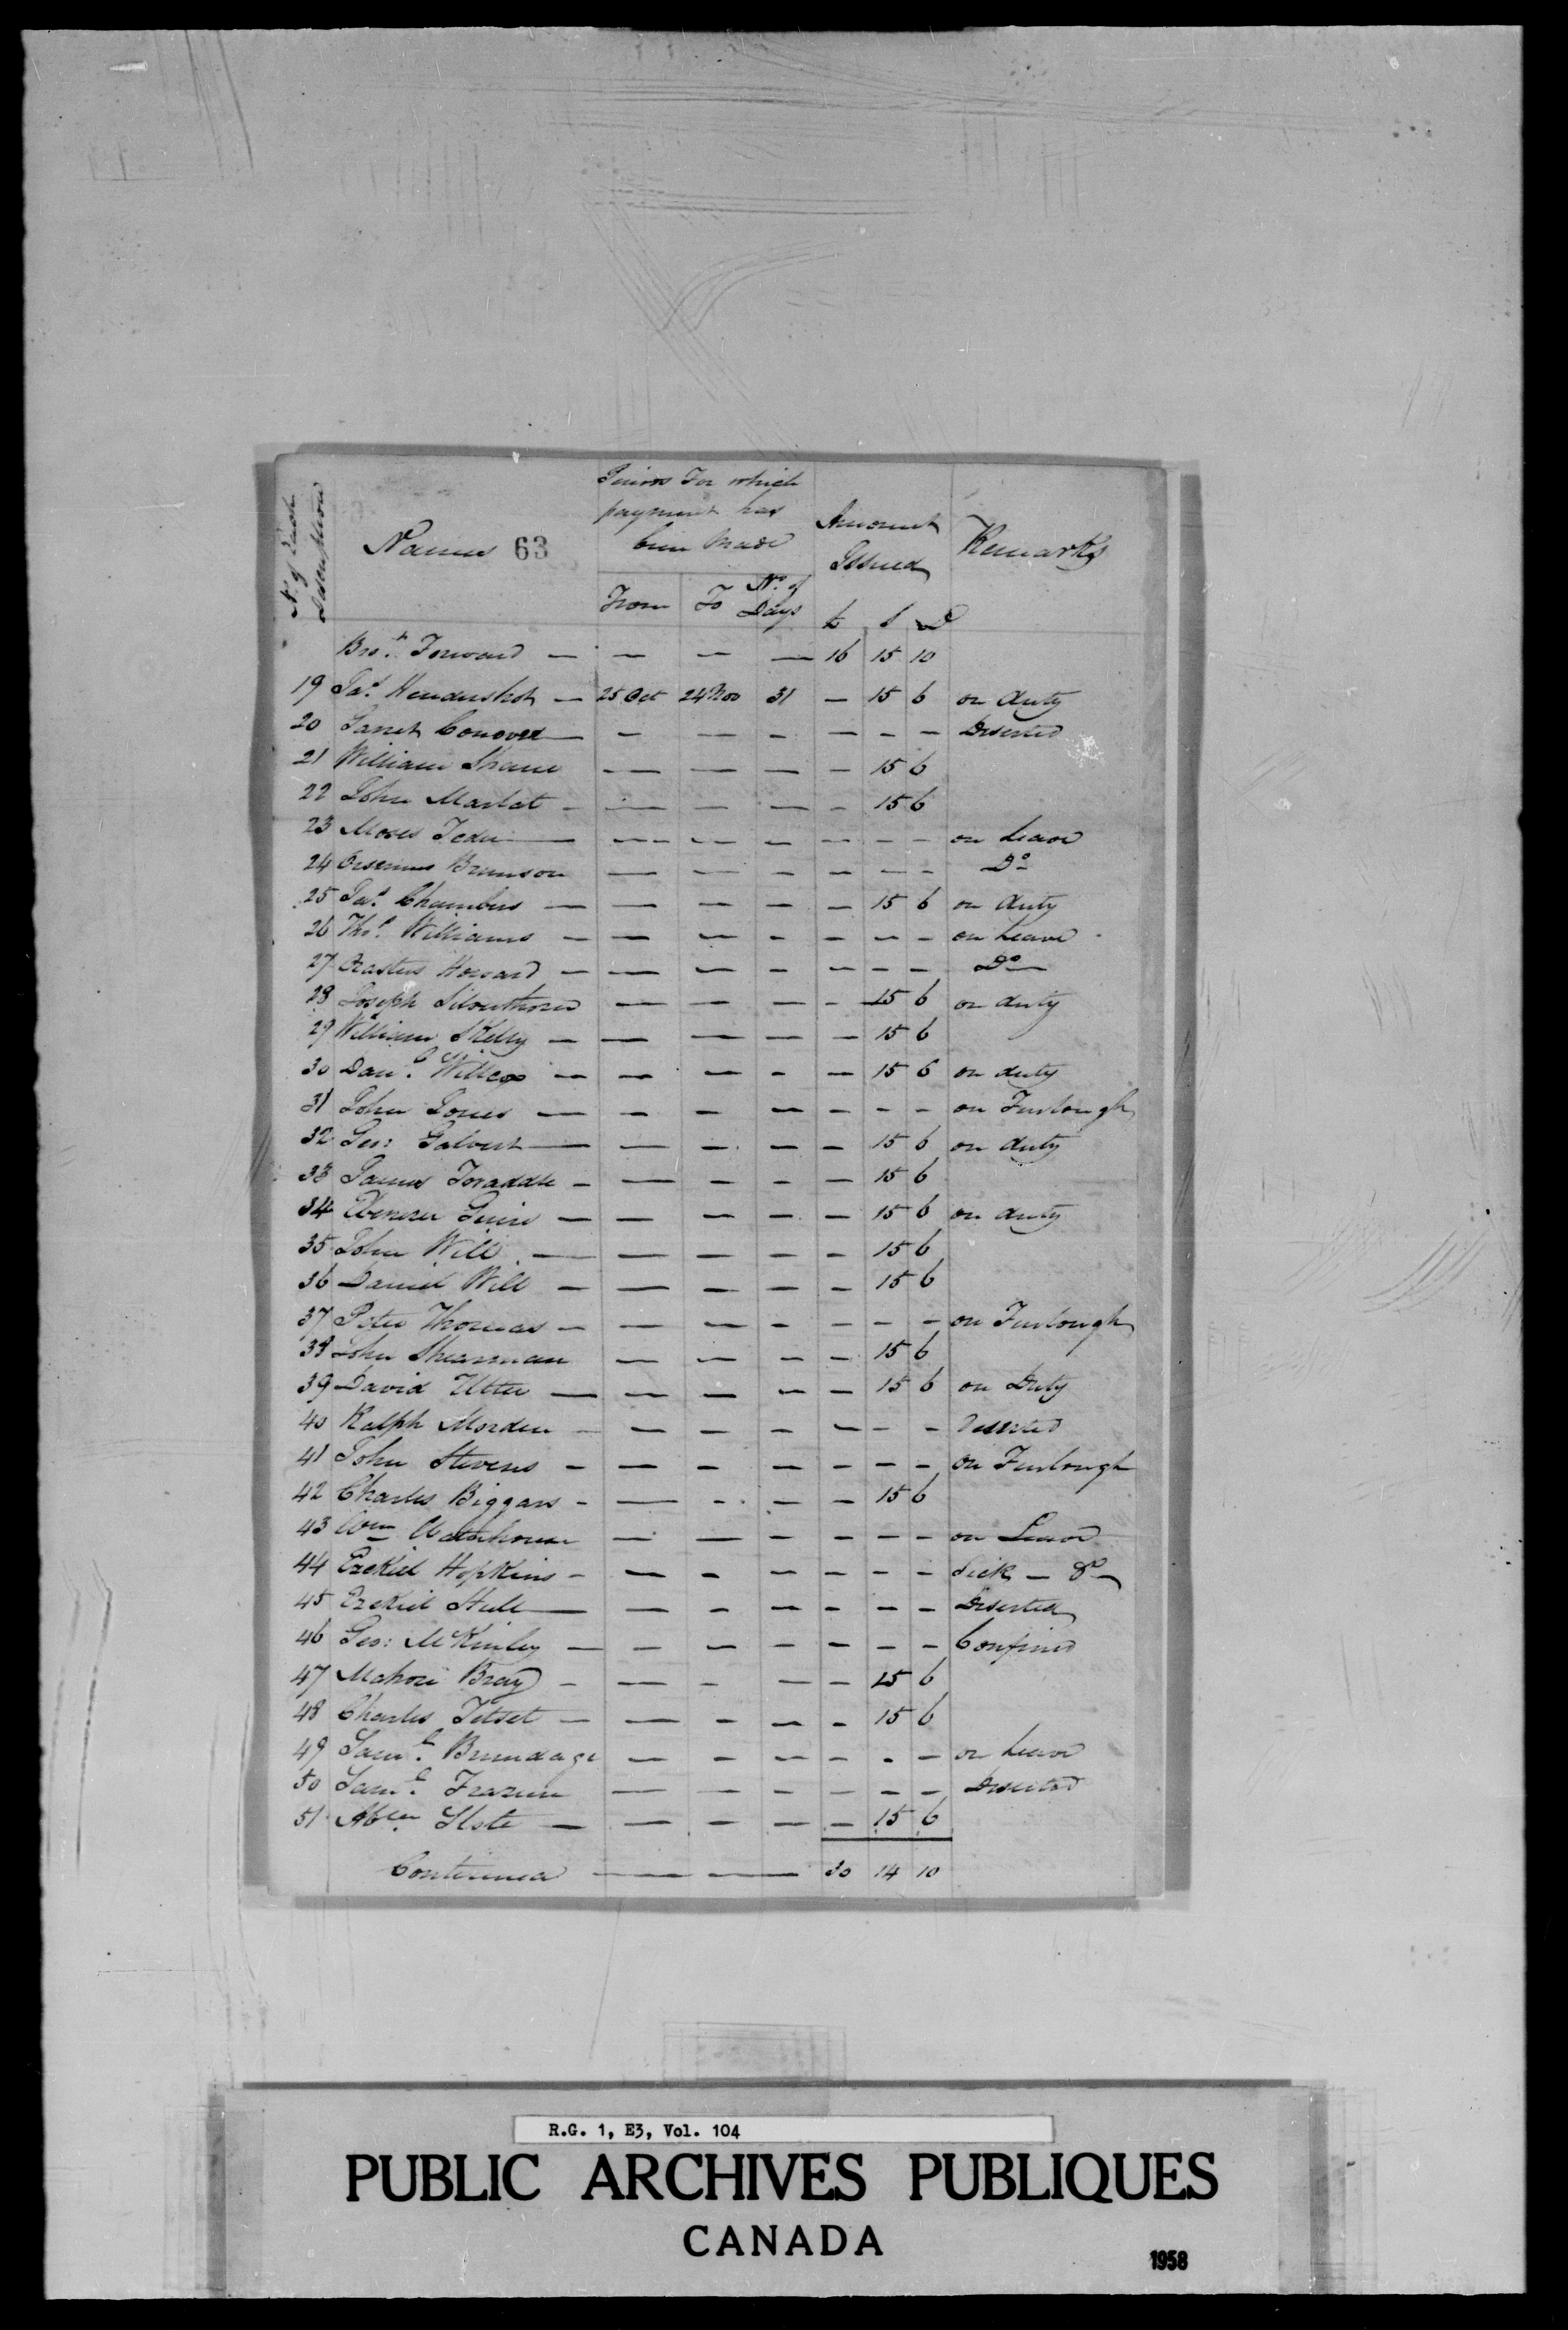 No. of Each Description
Names 63
Periods For which
payment has
been Made
Amount
Issued
Remarks
From To No. of Days £ S D
Brot. Forward — — — — 16 15 10
19 Jas. Hendershot — 25 Oct 24 Nov 31 — 15 6 on duty
20 Garret Conover — — — — — — — Deserted
21 William Shaw — — — — 15 6
22 John Marlat — — — — — 15 6
23 Moses — — — — — — — on Leave
24 Brunson — — — — — — Do
25 Jas. Chambers — — — — — 15 6 on duty
26 Thos. Williams — — — — — — — on Leave
27 Orastus Howard — — — — — — — Do
28 Joseph Silverthorn — — — — 15 6 on duty
29 William Skelly — — — — — 15 6
30 Danl. Willcox — — — — — 15 6 on duty
31 John Jones — — — — — — — on Furlough
32 Geo: Galvert — — — — — 15 6 on duty
33 James — — — — — 15 6
34 Ebenezer — — — — — 15 6 on duty
35 John Will — — — — — 15 6
36 Daniel Will — — — — — 15 6
37 Peter Thomas — — — — — — — on Furlough
38 John Shearman — — — — 15 6
39 David Utter — — — — — 15 6 on Duty
40 Ralph Morden — — — — — — — Deserted
41 John Stevens — — — — — — — on Furlough
42 Charles Biggars — — — — — 15 6
43 Wm Waterhouse — — — — — — on Leave
44 Ezekiel Hopkins — — — — — — — Sick — Do
45 Ezekiel Hull — — — — — — — Deserted
46 Geo: McKinley — — — — — — — Confined
47 Mahon Bray — — — — — 15 6
48 Charles Titset — — — — — 15 6
49 Saml. Brundage — — — — — — on Leave
50 Saml. Frazier — — — — — — Deserted
51 — — — — — 15 6
Continued — — 30 14 10
R.G. 1, E3, Vol. 104
PUBLIC ARCHIVES PUBLIQUES
CANADA
1958